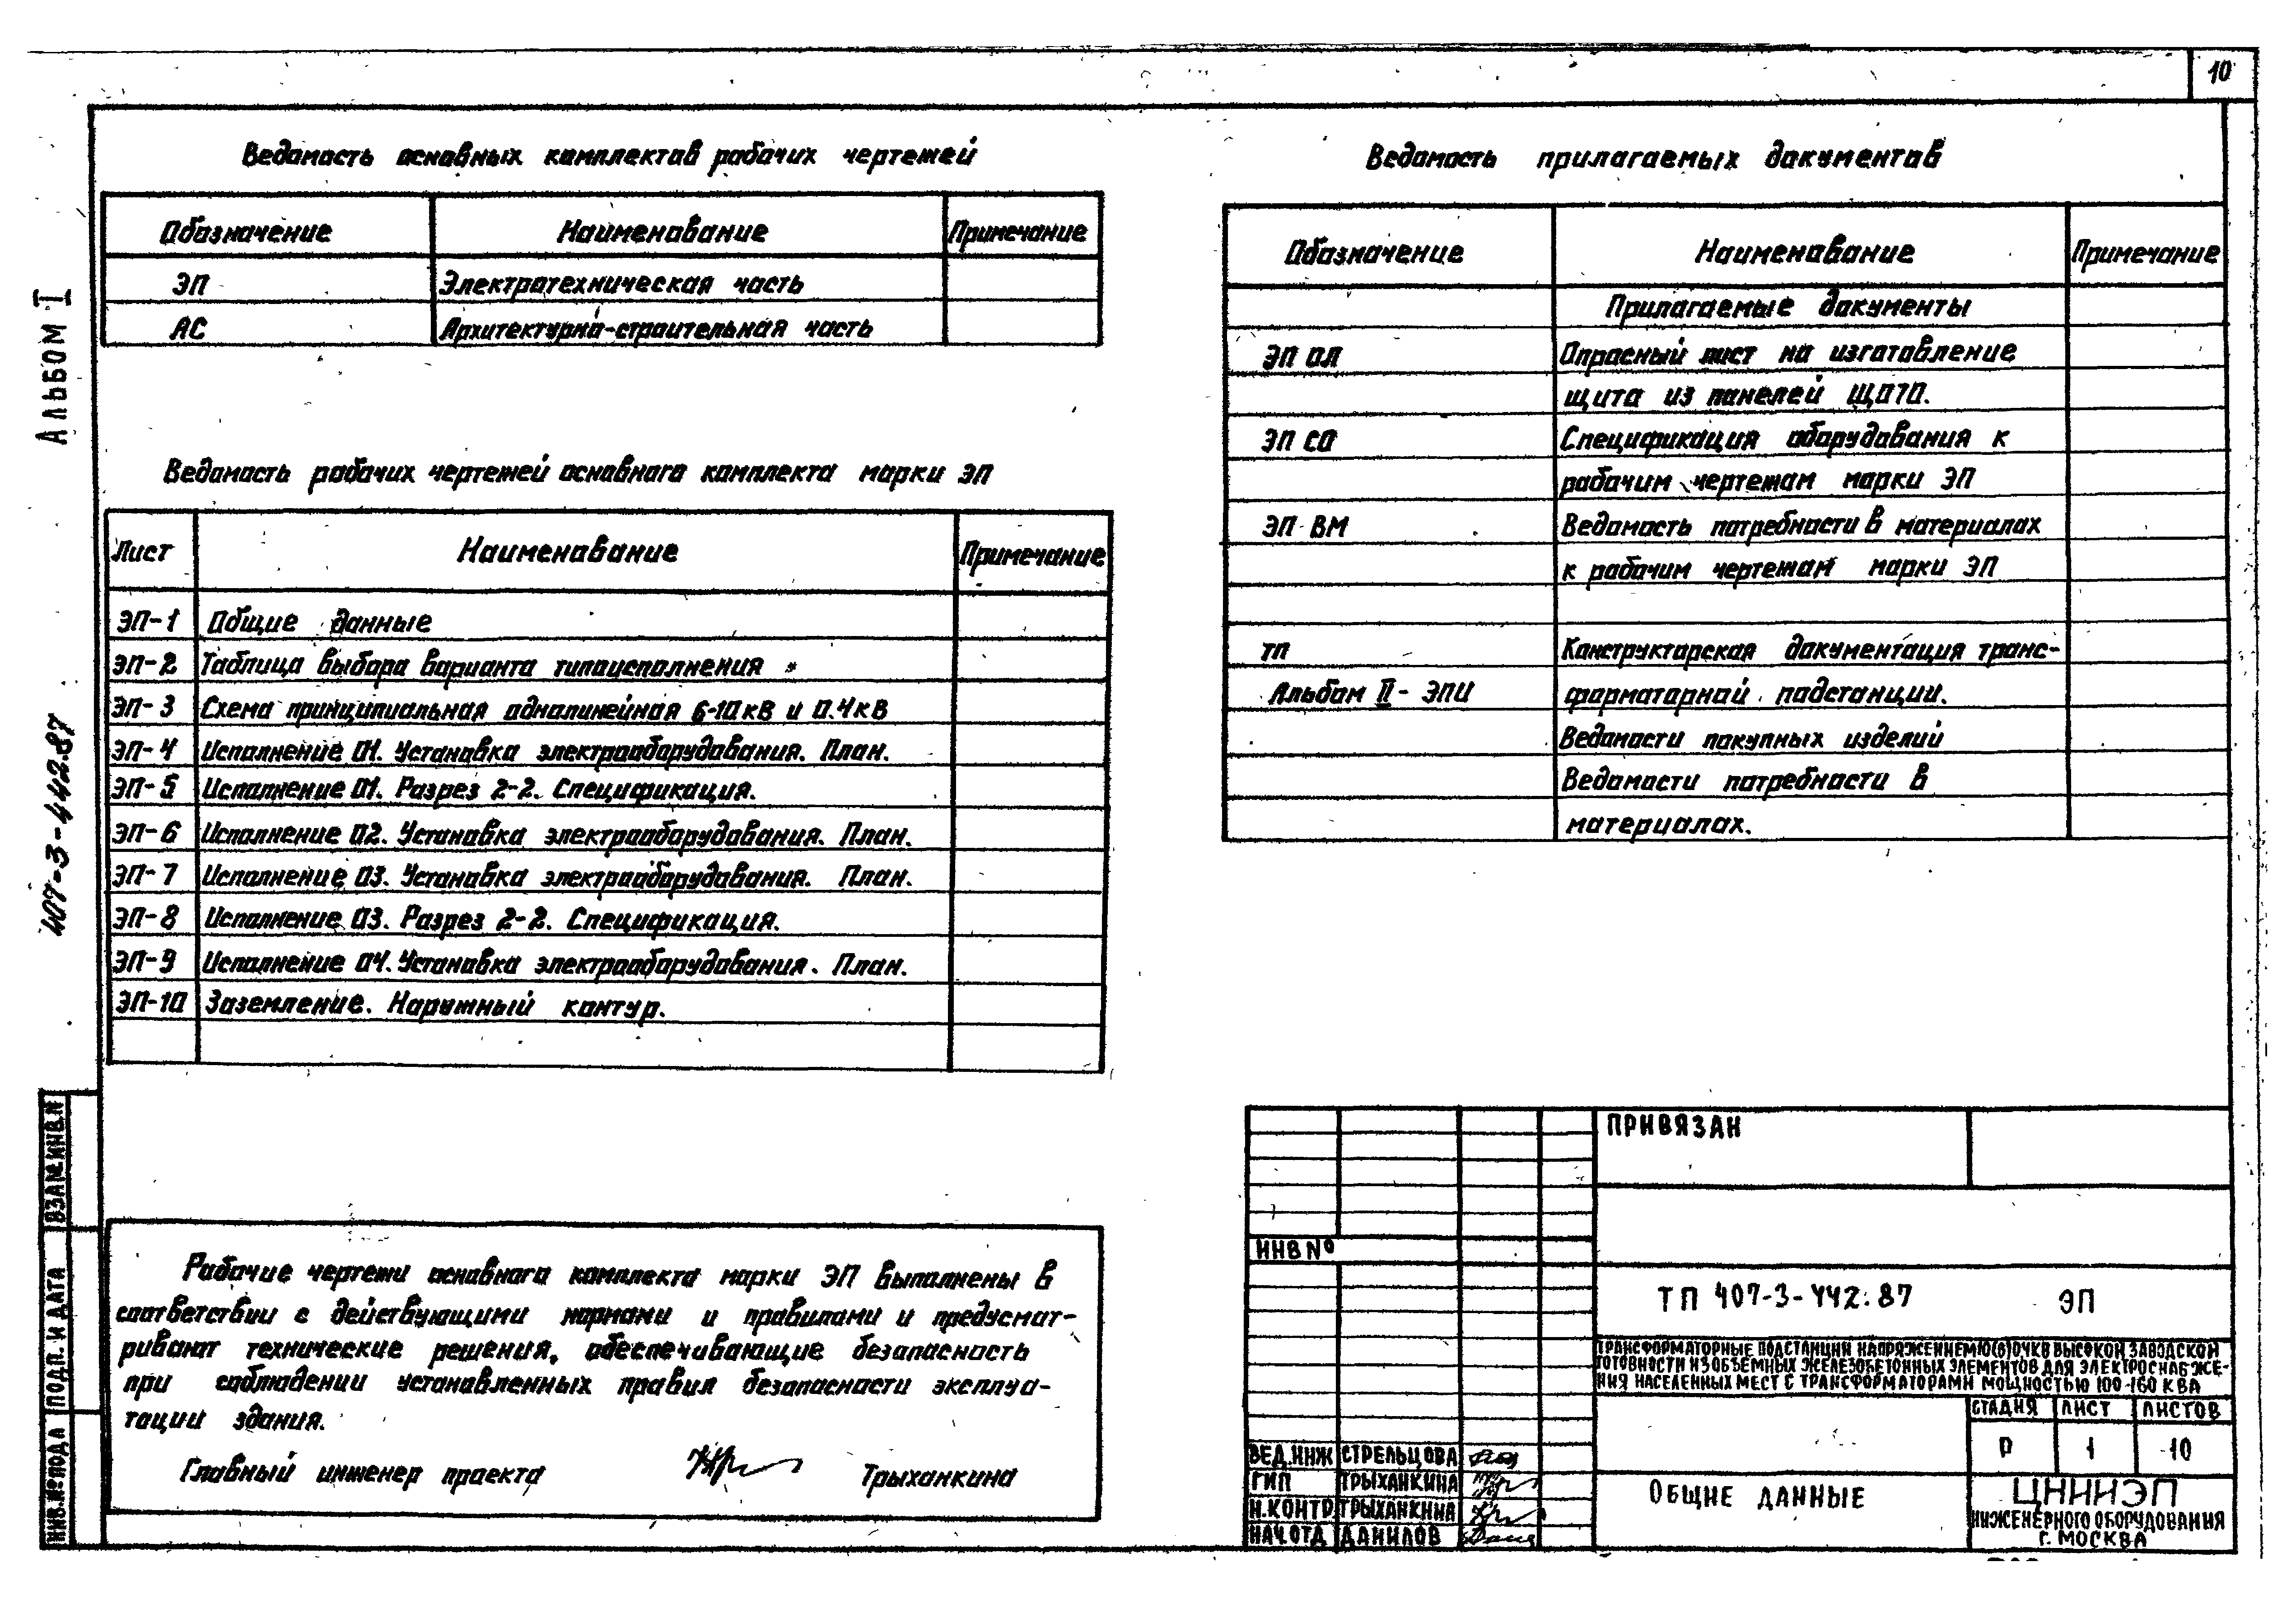 10
Ведомость основных комплектов рабочих чертежей
Обозначение Наименование Примечание
ЭП Электротехническая часть
АС Архитектурно-строительная часть
Ведомость рабочих чертежей основного комплекта марки ЭП
Лист Наименование Примечание
ЭП-1 Общие данные
ЭП-2 Таблица выбора варианта типоисполнения
ЭП-3 Схема принципиальная однолинейная 6-10кВ и 0.4кВ
ЭП-4 Исполнение 01. Установка электрооборудования. План.
ЭП-5 Исполнение 01. Разрез 2-2. Спецификация.
ЭП-6 Исполнение 02. Установка электрооборудования. План.
ЭП-7 Исполнение 03. Установка электрооборудования. План.
ЭП-8 Исполнение 03. Разрез 2-2. Спецификация.
ЭП-9 Исполнение 04. Установка электрооборудования. План.
ЭП-10 Заземление. Наружный контур.
Рабочие чертежи основного комплекта марки ЭП выполнены в
соответствии с действующими нормами и правилами и предусмат-
ривают технические решения, обеспечивающие безопасность
при соблюдении установленных правил безопасности эксплуа-
тации здания.
Главный инженер проекта Трыханкина
Ведомость прилагаемых документов
Обозначение Наименование Примечание
Прилагаемые документы
ЭП ОЛ Опросный лист на изготовление
щита из панелей ЩО70.
ЭП СО Спецификация оборудования к
рабочим чертежам марки ЭП
ЭП ВМ Ведомость потребности в материалах
к рабочим чертежам марки ЭП
ТП Конструкторская документация транс-
Альбом II - ЭПИ форматорной подстанции.
Ведомости покупных изделий
Ведомости потребности в
материалах.
ПРИВЯЗАН
ИНВ №
ТП 407-3-442.87 ЭП
ТРАНСФОРМАТОРНЫЕ ПОДСТАНЦИИ НАПРЯЖЕНИЕМ 10(6)/0,4 КВ ВЫСОКОЙ ЗАВОДСКОЙ
ГОТОВНОСТИ ИЗ ОБЪЕМНЫХ ЖЕЛЕЗОБЕТОННЫХ ЭЛЕМЕНТОВ ДЛЯ ЭЛЕКТРОСНАБЖЕ-
НИЯ НАСЕЛЕННЫХ МЕСТ С ТРАНСФОРМАТОРАМИ МОЩНОСТЬЮ 100-160 КВА
СТАДИЯ ЛИСТ ЛИСТОВ
Р 1 10
ВЕД.ИНЖ СТРЕЛЬЦОВА
ГИП ТРЫХАНКИНА
Н.КОНТР ТРЫХАНКИНА
НАЧ.ОТД ДАНИЛОВ
ОБЩИЕ ДАННЫЕ
ЦНИИЭП
ИНЖЕНЕРНОГО ОБОРУДОВАНИЯ
Г. МОСКВА
АЛЬБОМ I
407-3-442.87
ВЗАМ.ИНВ.N
ПОДП. И ДАТА
ИНВ.№ПОДЛ